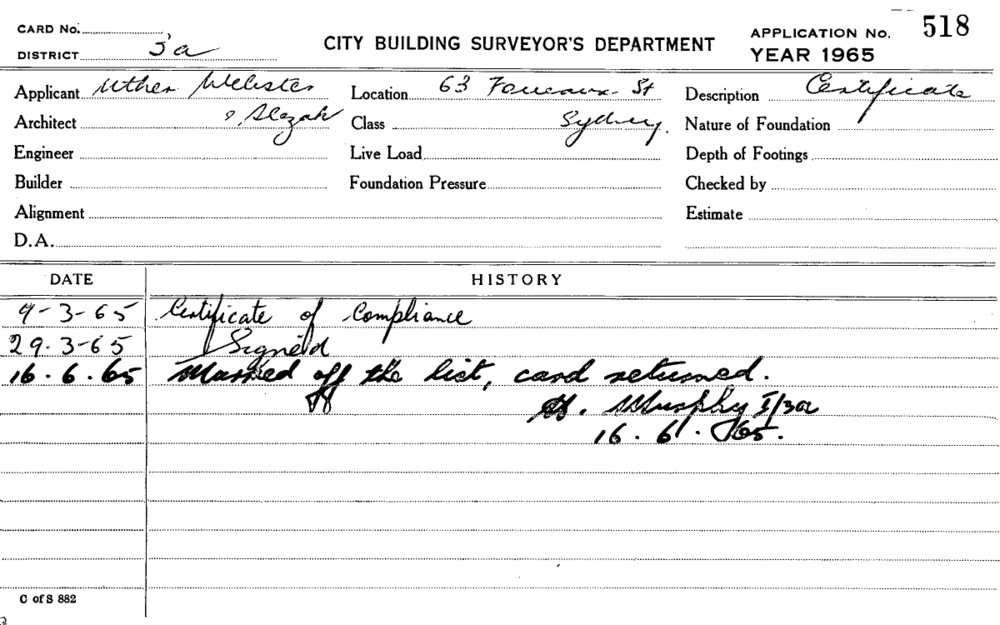 CARD No.
DISTRICT 3a
CITY BUILDING SURVEYOR'S DEPARTMENT
APPLICATION No. 518
YEAR 1965
Applicant Uther Webster Location 63 Foveaux St Description Certificate
Architect & Slezak Class Sydney. Nature of Foundation
Engineer Live Load Depth of Footings
Builder Foundation Pressure Checked by
Alignment Estimate
D.A.
DATE HISTORY
9-3-65 Certificate of Compliance
29.3-65 Signed
16.6.65 Marked off the list, card returned.
Murphy I/3a
16.6.65.
C of S 882